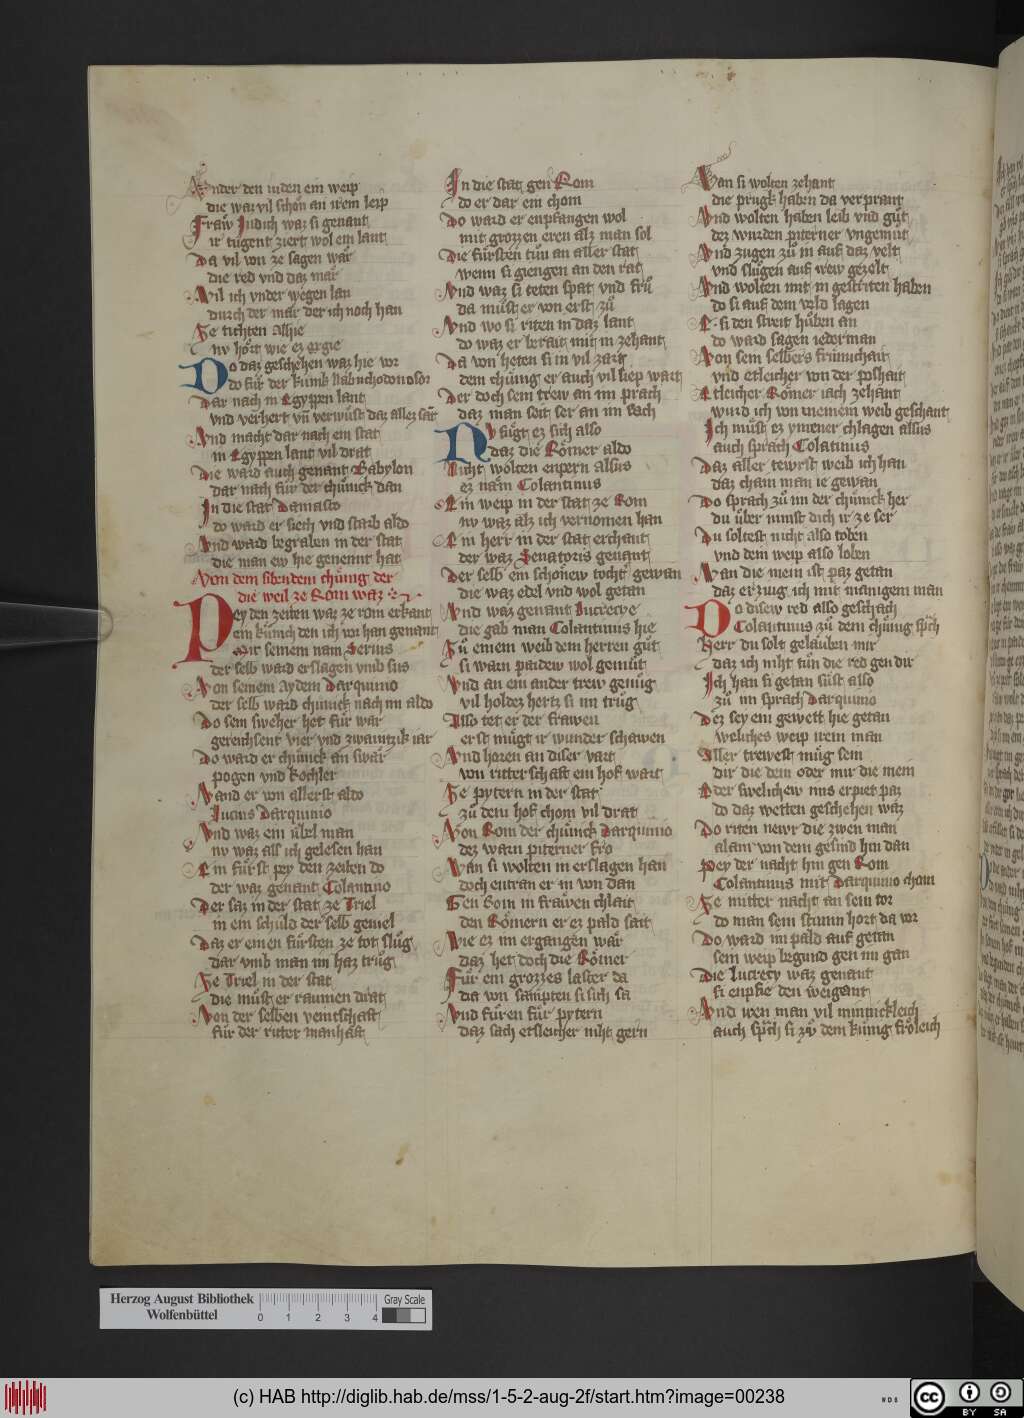 Ander den iuden ein weip
die waz vil schon an irem leip
Fraw Iudich waz si genant
ir tugent ziert wol ein lant
Da vil von ze sagen wär
die red vnd daz mär
Wil ich vnder wegen lan
durch der mär der ich noch han
Ze tichten alhie
nv hört wie ez ergie
Do daz geschehen waz hie vor
do fůr der künik Nabuchodonosor
Dar nach in Egyppen lant
vnd verhert vñ verwůst daz allez sāt
Vnd macht dar nach ein stat
in Egyppen lant vil drat
Die ward auch genant Babylon
dar nach fůr der chünick dan
In die stat Damasco
do ward er siech vnd starb aldo
Vnd ward begraben in der stat
die man ew hie genennt hat
Von dem sibendem chünig der
die weil ze Rom waz
Pey den zeiten waz ze rom erkant
ein künich den ich vor han genant
Mit seinem nam Serius
der selb ward erslagen vmb sus
Von seinem aydem Darquinio
der selb ward chünick nach im aldo
Do sein sweher het für war
gereichsent vier vnd zwaintzik iar
Do ward er chünick an swär
pogen vnd kochler
Vand er von allerst aldo
Lucius Darquinio
Vnd waz ein übel man
nv waz als ich gelesen han
Ein fürst pey den zeiten do
der waz genant Colantino
Der saz in der stat ze Triel
in ein schuld der selb geuiel
Daz er einen fürsten ze tot slůg
dar vmb man im haz trůg
Ze Triel in der stat
die můst er raumen drat
Von der selben veintschaft
fůr der ritter manhaft
In die stat gen Rom
do er dar ein chom
Do ward er enpfangen wol
mit grozzen eren alz man sol
Die fürsten tůn an aller stat
wenn si giengen an den rat
Vnd waz si teten spat vnd frů
da můst er von erst zů
Vnd wo si riten in daz lant
do waz er berait mit in zehant
Da von heten si in vil zart
dem chünig er auch vil liep wart
Der doch sein trew an im prach
daz man seit ser an im sach
Nv fůgt ez sich also
daz die Römer aldo
Nicht wolten enpern alsus
ez näm Colantinus
Ein weip in der stat ze Rom
nv waz alz ich vernomen han
Ein herr in der stat erchant
der waz Senatoris genant
Der selb ein schonew tocht gewan
die waz edel vnd wol getan
Vnd waz genant Lucrecie
die gab man Colantinus hie
Zů einem weib dem herren gůt
si warn paidew wol gemůt
Vnd an ein ander trew genůg
vil holdez hertz si im trůg
Also tet er der frawen
erst můgt ir wunder schawen
Vnd horen an diser vart
von ritterschaft ein hof wart
Ze pytern in der stat
zů dem hof chom vil drat
Von Rom der chünick Darquinio
dez warn piterner fro
Wan si wolten in erslagen han
doch entran er in von dan
Gen Rom in frawen chlait
den Römern er ez pald sait
Wie ez im ergangen wär
daz het doch die Römer
Für ein grozzes laster da
da von sampten si sich sa
Vnd fůren für pytern
daz sach etsleicher niht gern
Wan si wolten zehant
die prugk haben da verprant
Vnd wolten haben leib vnd gůt
dez wurden piterner vngemůt
Vnd zugen zů in auf daz velt
vnd slůgen auf irew gezelt
Vnd wolten mit in gestriten haben
do si auf dem veld lagen
E si den streit hůben an
do ward sagen iederman
Von sein selbers frümichait
vnd etleicher von der poshait
Etleicher Römer iach zehant
wurd ich von meinem weib geschant
Ich můst ez ymmer chlagen alsus
auch sprach Colatinus
Daz aller tewrst weib ich han
daz chain man ie gewan
Do sprach zů im der chünick her
du über nimst dich ir ze ser
Du soltest nicht also toben
vnd dem weip also loben
Wan die mein ist paz getan
daz erzeug ich mit manigem man
Do disew red also geschach
Colantinus zů dem chünig sp̄ch
Herr du solt gelauben mir
daz ich niht tůn die red gen dir
Ich han si getan süst also
zů im sprach Darquinio
Dez sey ein gewett hie getan
welches weip irem man
Aller trewest müg sein
dir die dein oder mir die mein
Oder swelichew uns erpiet paz
do daz wetten geschehen waz
Do riten newr die zwen man
alain von dem gesind hin dan
Pey der nacht hin gen Rom
Colantinus mit Darquinio chom
Ze mitter nacht an sein tor
do man sein stimm hort da vor
Do ward im pald auf getan
sein weip begund gen im gan
Die Lucrecy waz genant
si enpfie den weigant
Vnd iren man vil minnickleich
auch sp̄ch si zů dem künig frőleich
Herzog August Bibliothek
Wolfenbüttel
0 1 2 3 4
Gray Scale
(c) HAB http://diglib.hab.de/mss/1-5-2-aug-2f/start.htm?image=00238
WDB
cc BY SA